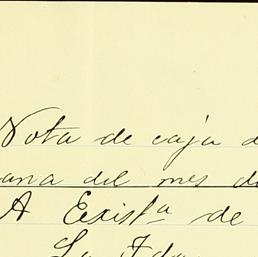 Nota de caja d
ana del mes d
A Exist.a de
La Fda